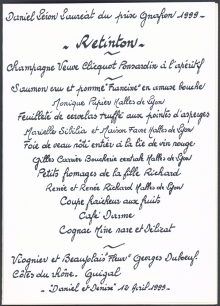 Daniel Léron Lauréat du prix Gnafron 1999
~ Retinton ~
Champagne Veuve Clicquot Ponsardin à l'apéritif
Saumon cru et pomme "Francine" en amuse bouche
Monique Papier Halles de Lyon
Feuilleté de cervelas truffé aux pointes d'asperges
Marielle Sibilia et Maison Faure Halles de Lyon
Foie de veau rôti entier à la lie de vin rouge
Gilles Carrier Boucherie Halles de Lyon
Petits fromages de la fille Richard
Renée et Renée Richard Halles de Lyon
Coupe fraicheur aux fruits
Café
Cognac
Viognier et Beaujolais "Fleur" Georges Duboeuf
Côtes du Rhône. Guigal
- "Daniel et Denise" 12 Avril 1999 -